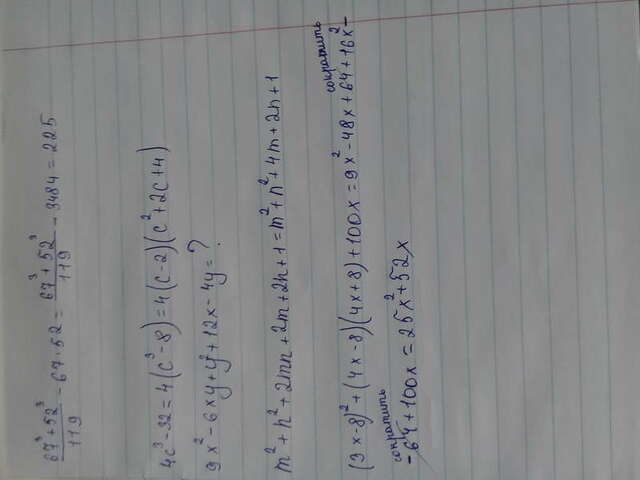 67³+52³/119 - 67·52 = 67³+52³/119 - 3484 = 225
4c³-32=4(c³-8)=4(c-2)(c²+2c+4)
9x²-6xy+y²+12x-4y=?
m²+n²+2mn+2m+2n+1=m²+n²+4m+2n+1
сократить
(3x-8)²+(4x-8)(4x+8)+100x=9x²-48x+64+16x²-
сократить
-64+100x=25x²+52x